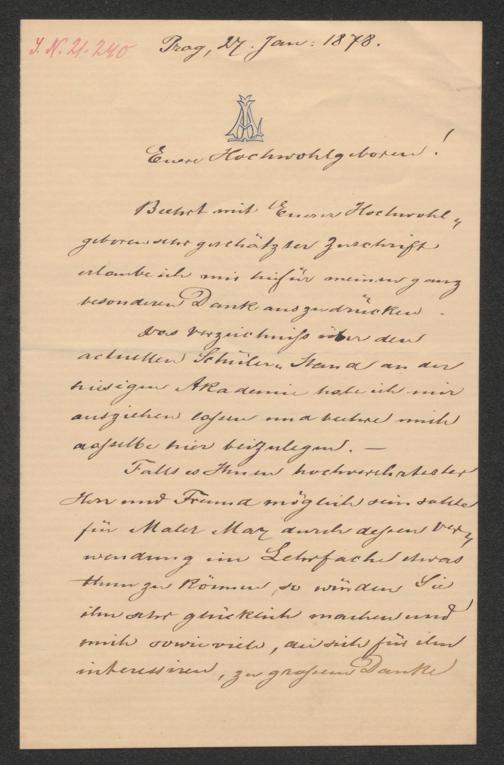 J. N. 21.240
Prag, 27. Jan: 1878.
AL
Euere Hochwohlgeboren!
Beehrt mit Euerer Hochwohl„
geboren sehr geschätzter Zuschrift
erlaube ich mir hiefür meinen ganz
besonderen Dank auszudrücken.
Das Verzeichniß über den
actuellen Schüler„Stand an der
hiesigen Akademie habe ich mir
ausziehen lassen und beehre mich
dasselbe hier beizulegen. —
Falls es Ihnen hochverehrtester
Herr und Freund möglich sein sollte
für Maler Max durch dessen Ver„
wendung im Lehrfache etwas
thun zu können, so würden Sie
ihn sehr glücklich machen und
mich sowie viele, die sich für ihn
interessiren, zu großem Danke